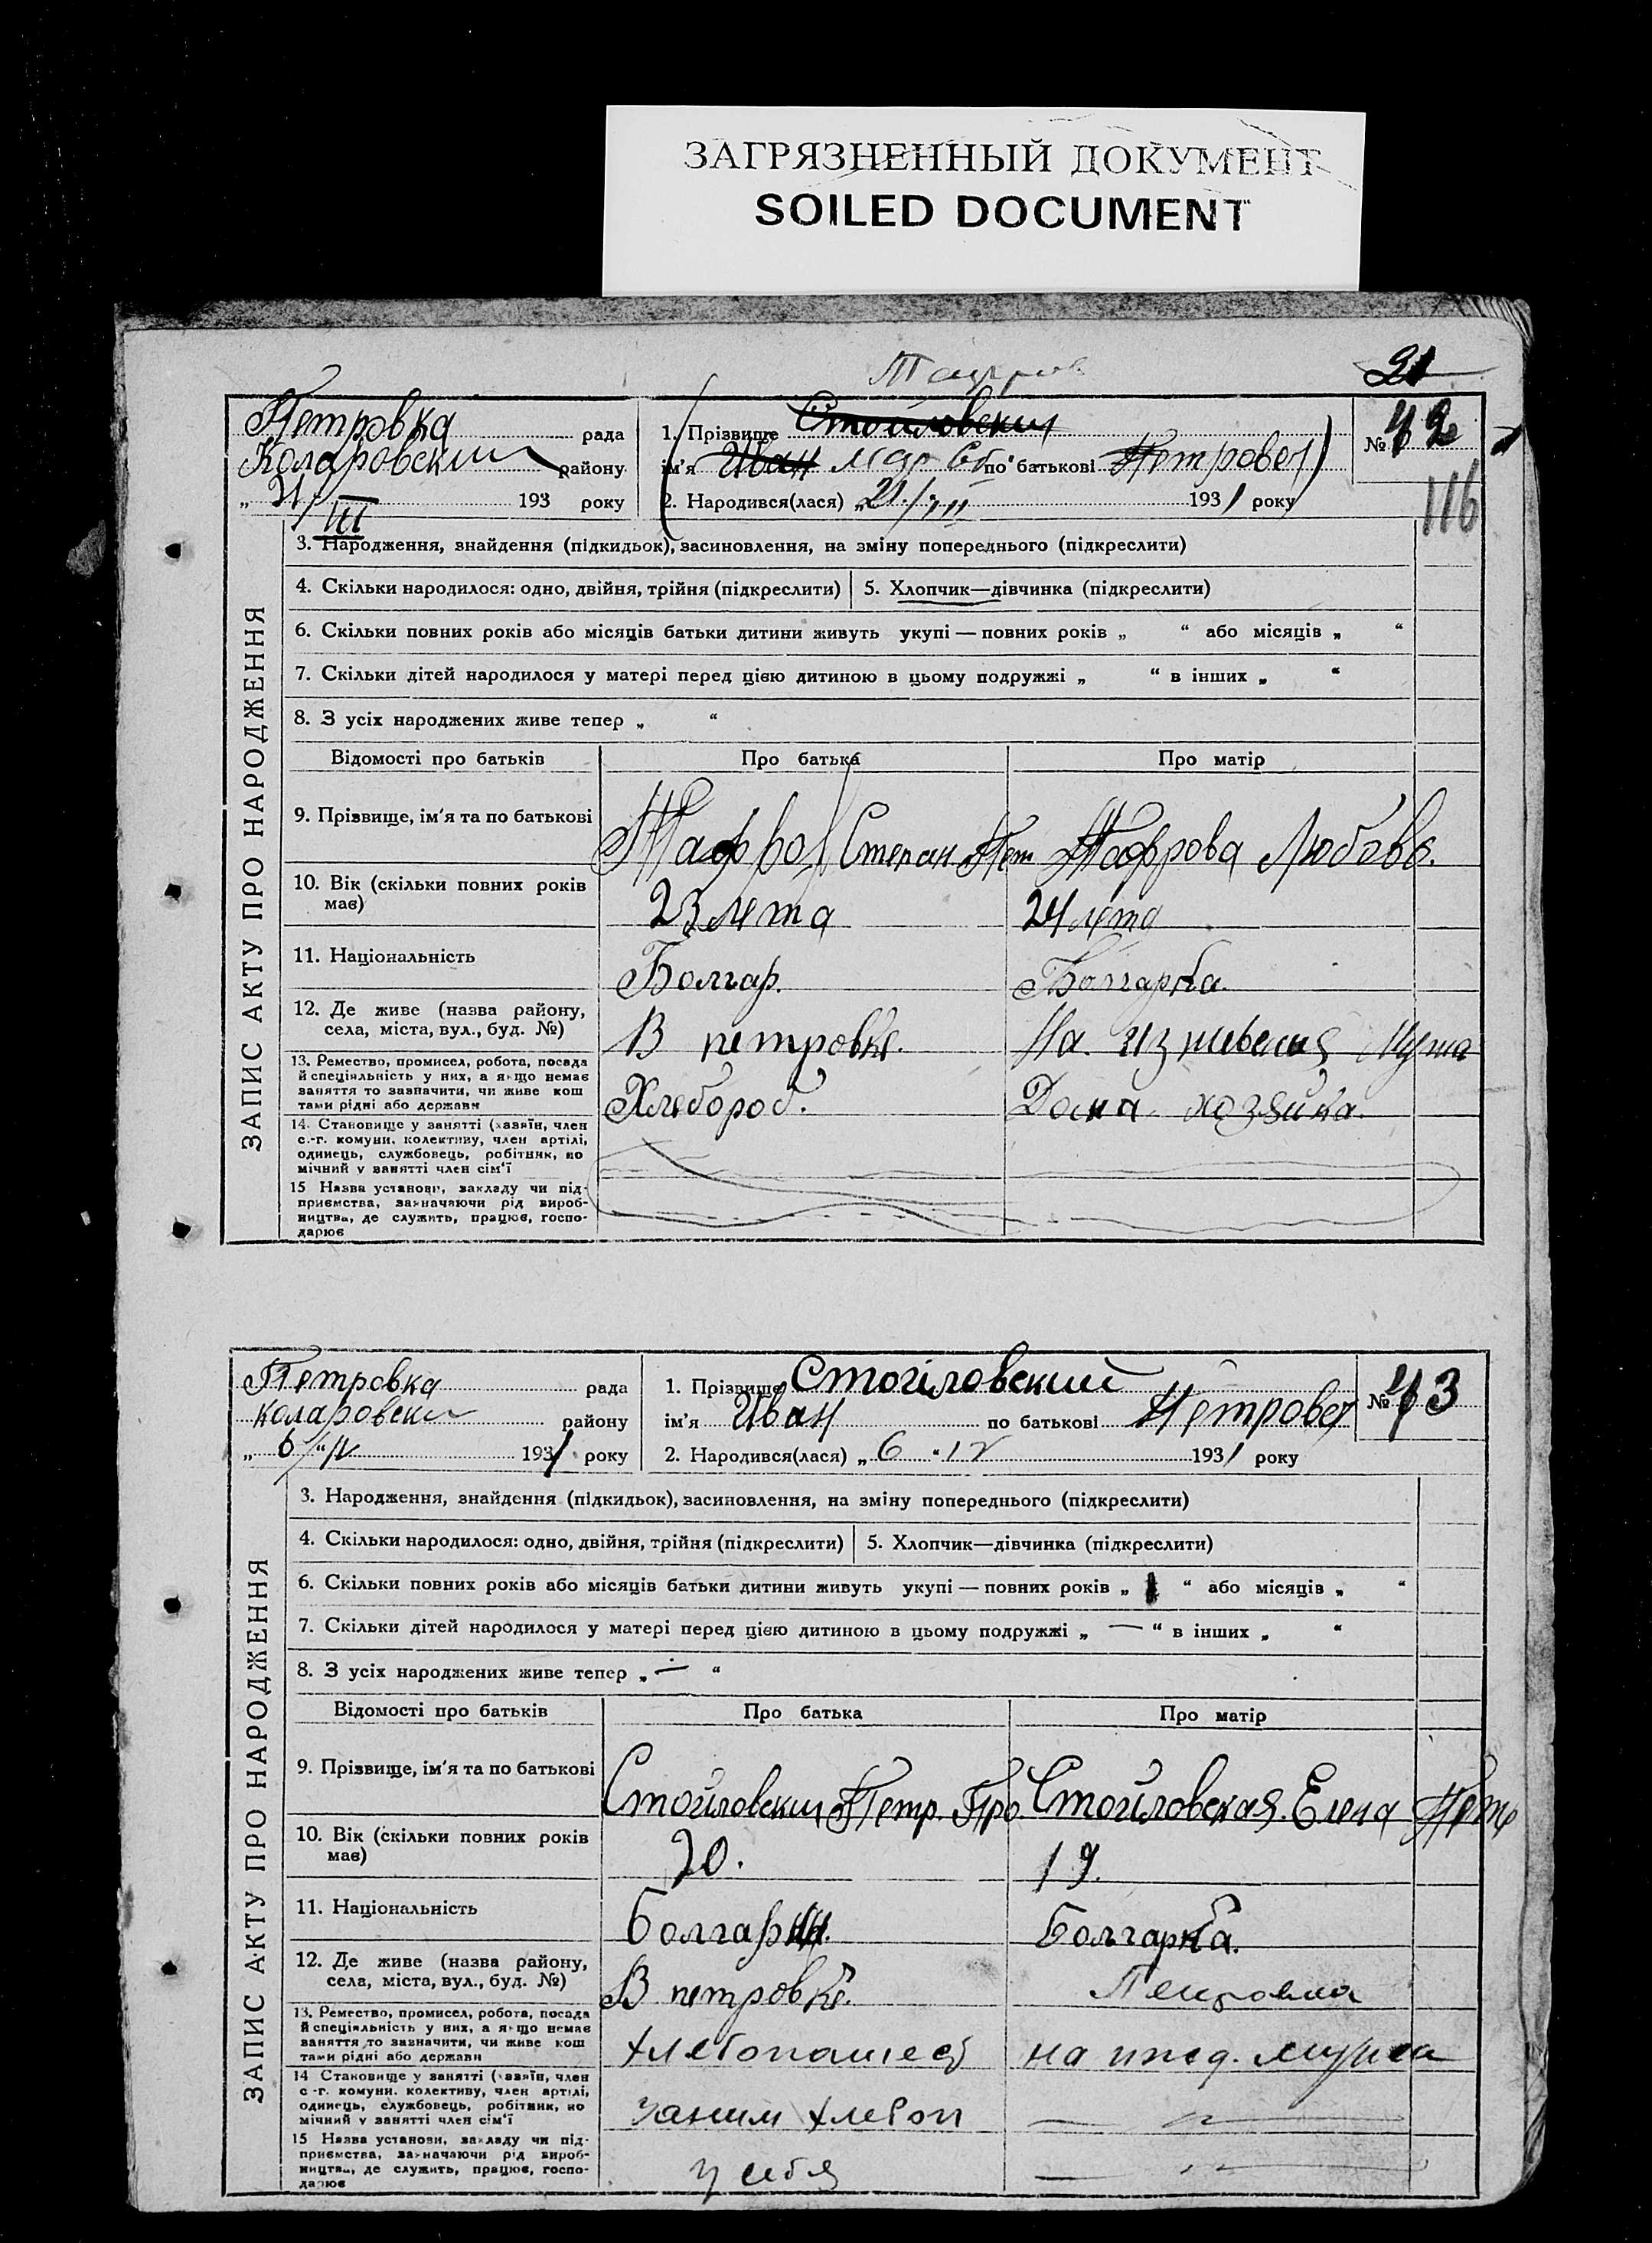 ЗАГРЯЗНЕННЫЙ ДОКУМЕНТ
SOILED DOCUMENT
21
Петровка рада
Коларовский району
„21/III 193 року
1. Прізвище Стойловский
ім'я Иван по батькові Петровеч
2. Народився(лася) „21/III 1931 року
№ 42
116
ЗАПИС АКТУ ПРО НАРОДЖЕННЯ
3. Народження, знайдення (підкидьок), засиновлення, на зміну попереднього (підкреслити)
4. Скільки народилося: одно, двійня, трійня (підкреслити) 5. Хлопчик—дівчинка (підкреслити)
6. Скільки повних років або місяців батьки дитини живуть укупі — повних років „ “ або місяців „ “
7. Скільки дітей народилося у матері перед цією дитиною в цьому подружжі „ “ в інших „ “
8. З усіх народжених живе тепер „ “
Відомості про батьків Про батька Про матір
9. Прізвище, ім'я та по батькові Степан Пет Любовь.
10. Вік (скільки повних років має) 23 лета 24 лета
11. Національність Болгар. Болгарка.
12. Де живе (назва району, села, міста, вул., буд. №) В петровке. На мужа
13. Ремество, промисел, робота, посада й спеціяльність у них, а якщо немає заняття то зазначити, чи живе коштами рідні або держави Хлебороб. Дома хозяйка.
14. Становище у занятті (хазяїн, член с.-г. комуни, колективу, член артілі, одинець, службовець, робітник, помічний у занятті член сім'ї
15 Назва установи, закладу чи підприємства, зазначаючи рід виробництва, де служить, працює, господарює
Петровка рада
коларовски району
„ 6/IV 1931 року
1. Прізвище Стойловский
ім'я Иван по батькові Петровеч
2. Народився(лася) „ 6 “ IV 1931 року
№ 43
ЗАПИС АКТУ ПРО НАРОДЖЕННЯ
3. Народження, знайдення (підкидьок), засиновлення, на зміну попереднього (підкреслити)
4. Скільки народилося: одно, двійня, трійня (підкреслити) 5. Хлопчик—дівчинка (підкреслити)
6. Скільки повних років або місяців батьки дитини живуть укупі — повних років „ “ або місяців „ “
7. Скільки дітей народилося у матері перед цією дитиною в цьому подружжі „ — “ в інших „ “
8. З усіх народжених живе тепер „ — “
Відомості про батьків Про батька Про матір
9. Прізвище, ім'я та по батькові Стойловский Петр. Про Стойловская. Елена Петр
10. Вік (скільки повних років має) 20. 19.
11. Національність Болгарин. Болгарка.
12. Де живе (назва району, села, міста, вул., буд. №) В петровке. Петровка
13. Ремество, промисел, робота, посада й спеціяльність у них, а якщо немає заняття то зазначити, чи живе коштами рідні або держави хлебопашец на ижд. мужа
14 Становище у занятті (хазяїн, член с.-г. комуни, колективу, член артілі, одинець, службовець, робітник, помічний у занятті член сім'ї
15 Назва установи, закладу чи підприємства, зазначаючи рід виробництва, де служить, працює, господарює у себя